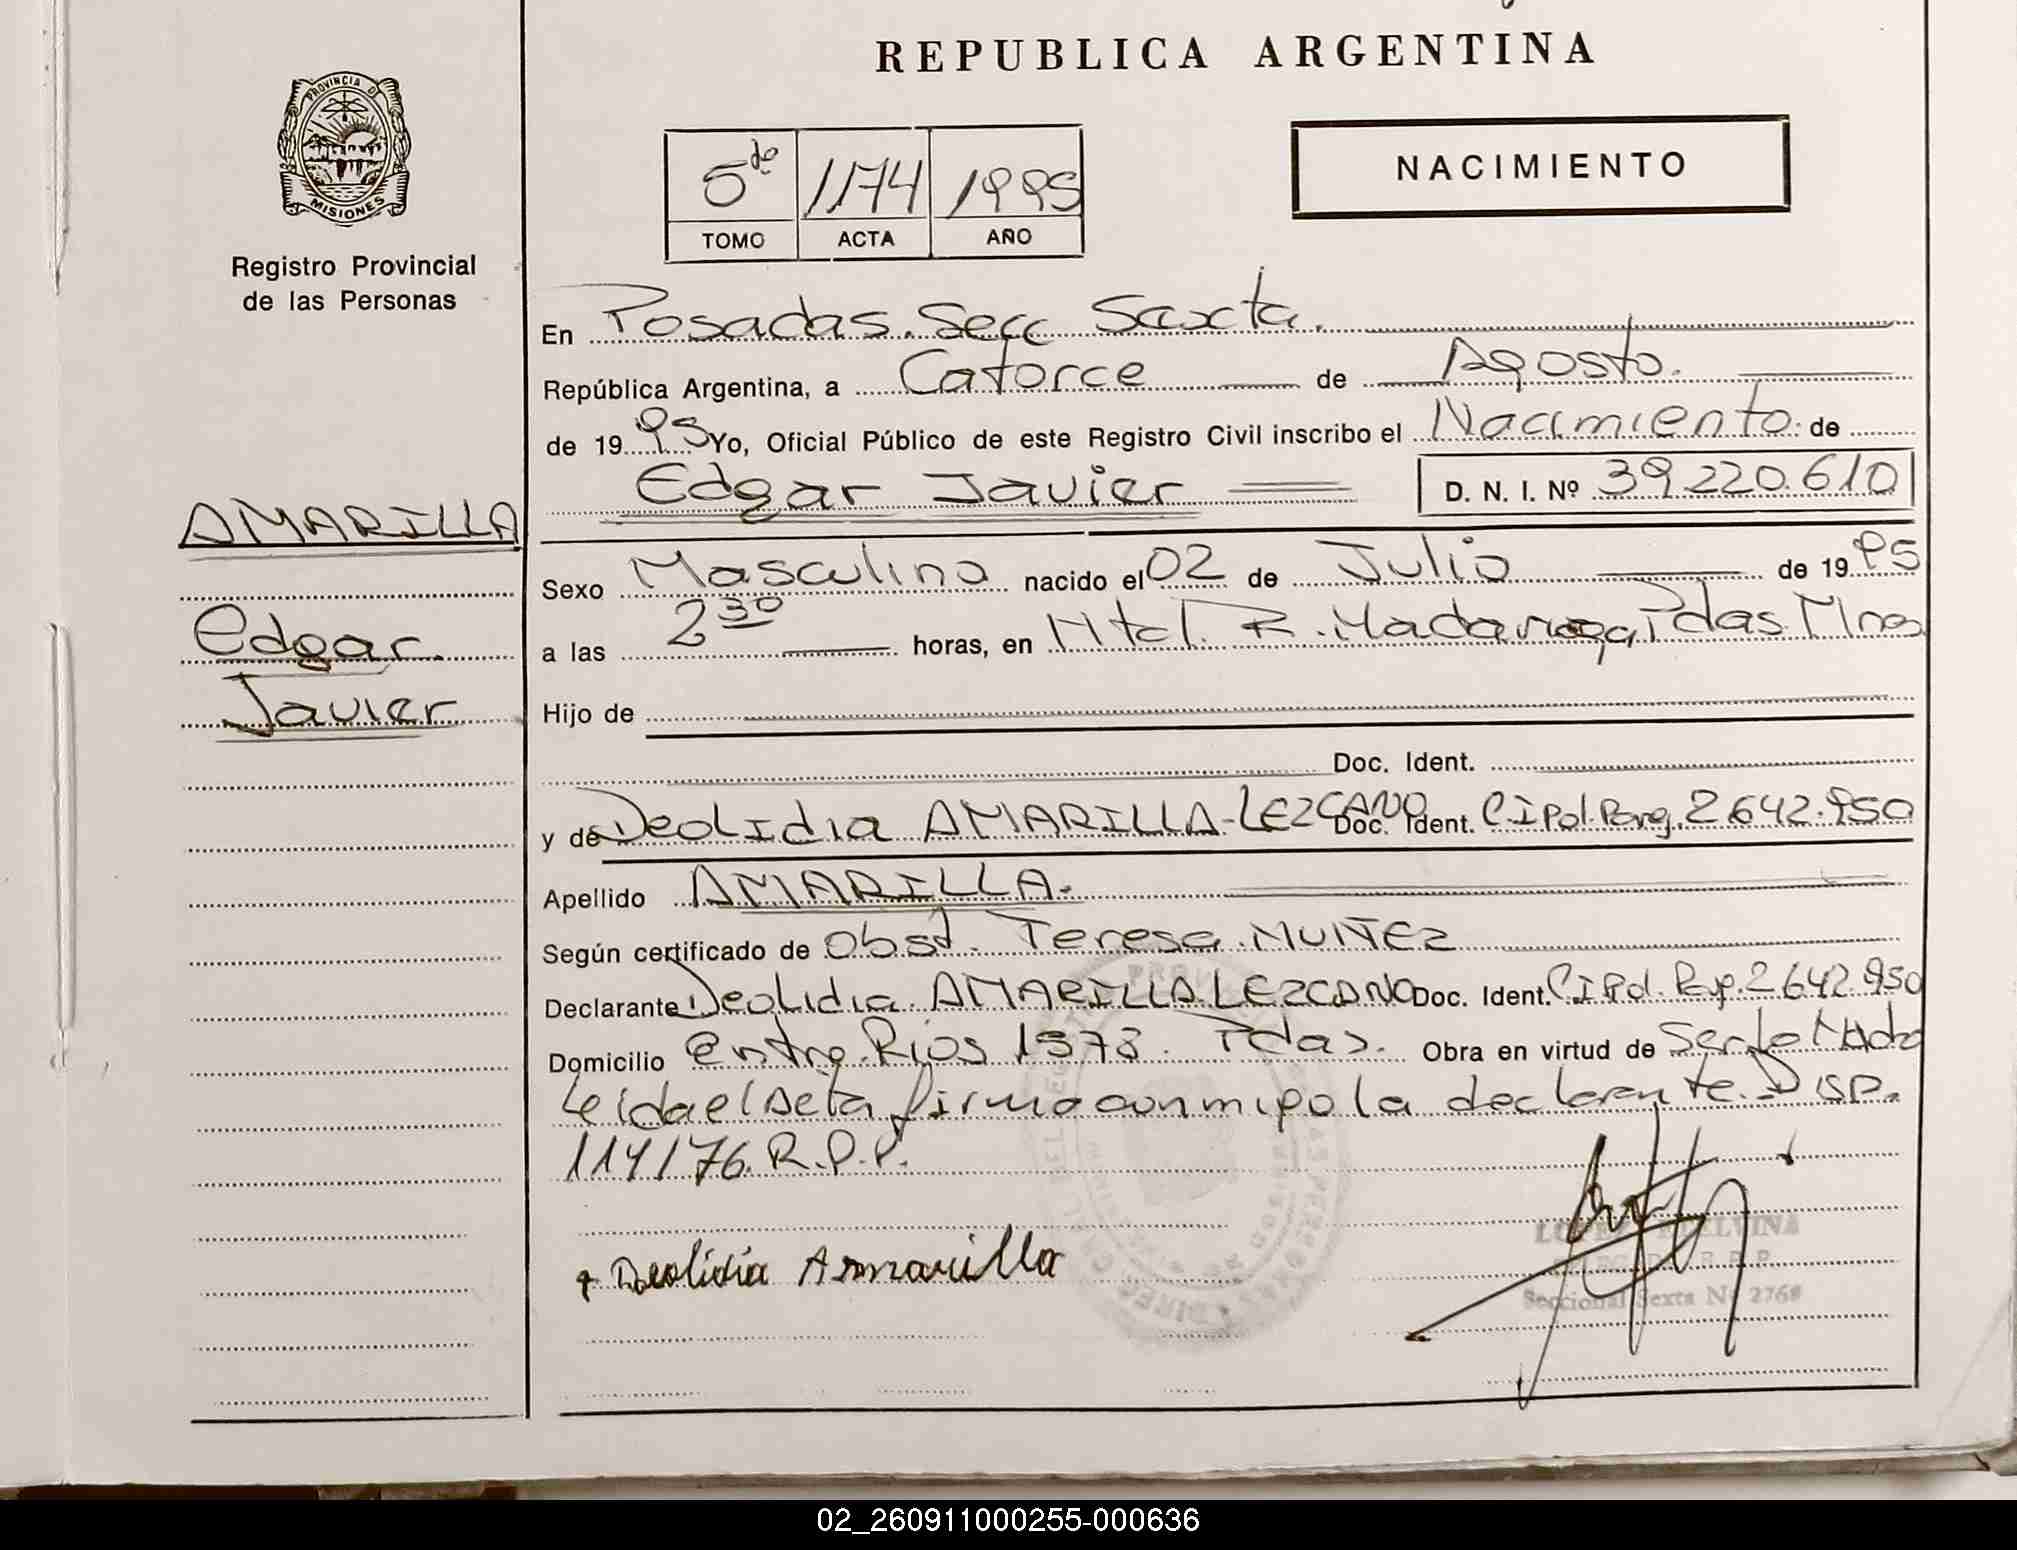 REPUBLICA ARGENTINA
PROVINCIA DE
MISIONES
Registro Provincial
de las Personas
5to 1174 1995
TOMO ACTA AÑO
NACIMIENTO
En Posadas. Secc Sexta.
República Argentina, a Catorce de Agosto.
de 1995 Yo, Oficial Público de este Registro Civil inscribo el Nacimiento de
Edgar Javier D. N. I. Nº 39.220.610
AMARILLA
Edgar
Javier
Sexo Masculino nacido el 02 de Julio de 1995
a las 2 30 horas, en Htal. R. Madariaga Pdas. Mnes
Hijo de
Doc. Ident.
y de Deolidia AMARILLA-LEZCANO Doc. Ident. C.I Pol. Parg. 2.642.950
Apellido AMARILLA.
Según certificado de Obst. Teresa MUÑEZ
Declarante Deolidia AMARILLA LEZCANO Doc. Ident. C I Pol. 2.642.950
Domicilio Entre Rios 1573. Pdas. Obra en virtud de ser
Leida el Acta firma con migo la declarante. Disp.
114/76. R.P.P.
Deolidia Amarilla
Seccional Sexta Nº 2768
02_260911000255-000636